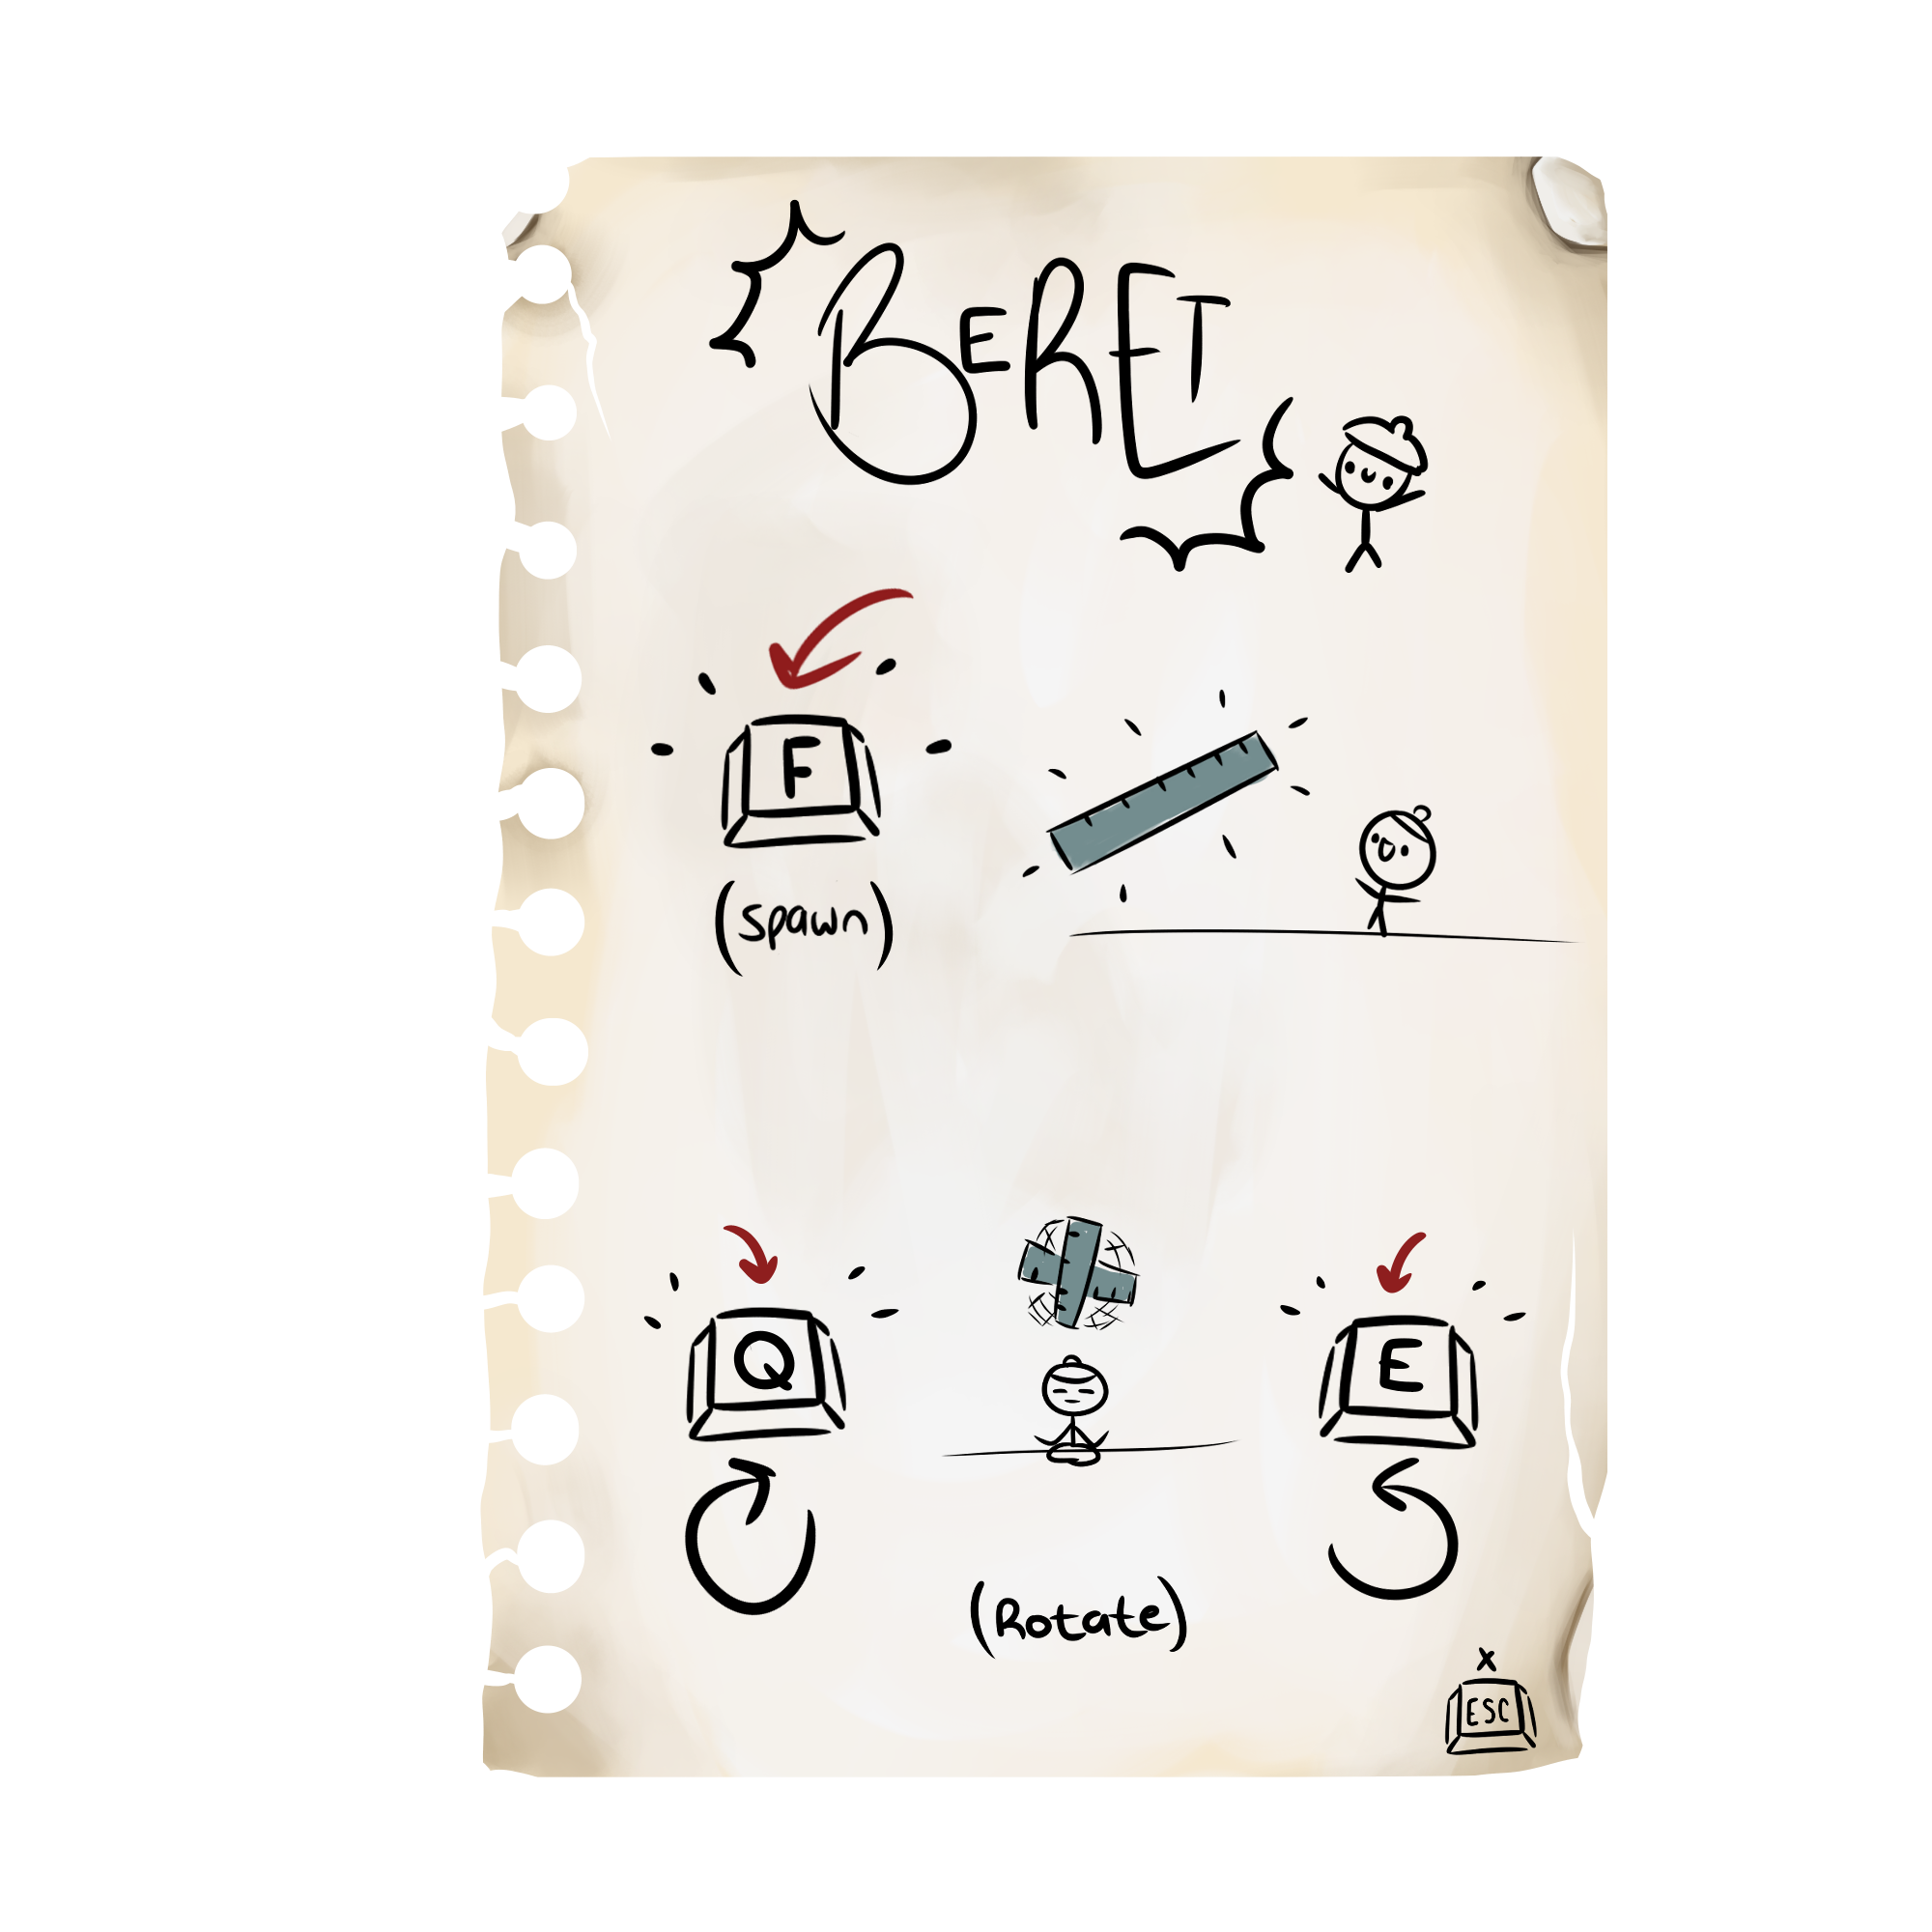 BERET
F
(spawn)
Q
E
(Rotate)
x
ESC